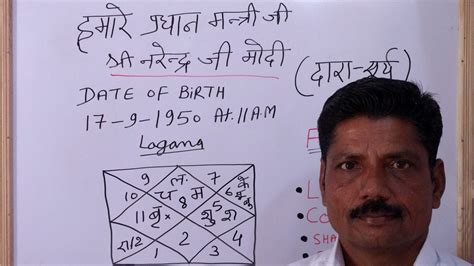 हमारे प्रधान मन्त्री जी
श्री नरेन्द्र जी मोदी
(दारा-सूर्य)
DATE OF BiRTH
17-9-1950 At.11A.M
Lagana
9 ल. 7
10 च 8 म 6 के
11 बृ x 5
शु श
रा/12 2 4
1 3
L
Co
SHA